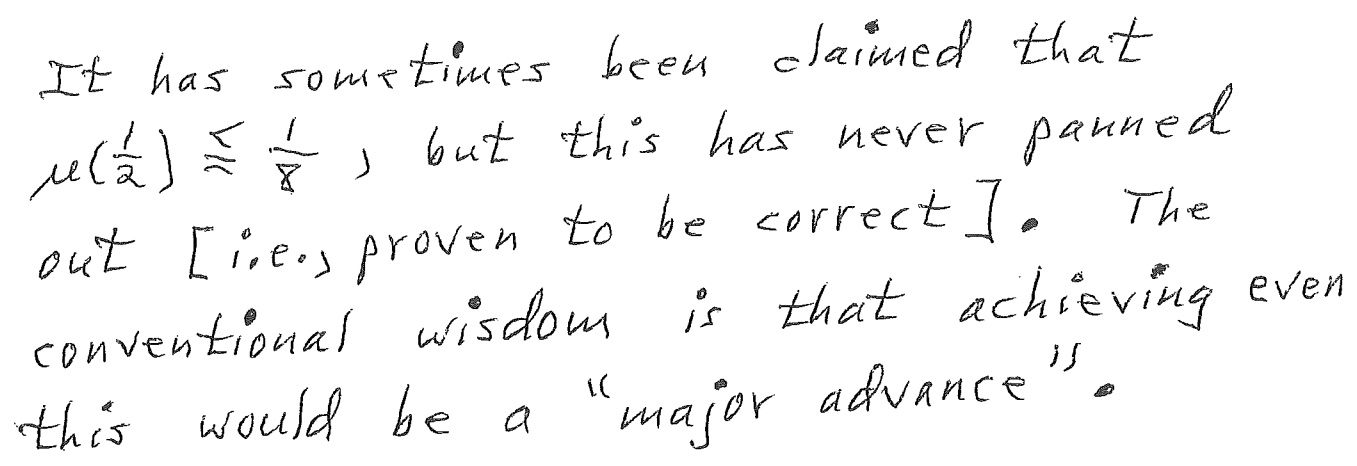 It has sometimes been claimed that
μ(1/2) ≦ 1/8, but this has never panned
out [i.e., proven to be correct]. The
conventional wisdom is that achieving even
this would be a "major advance".